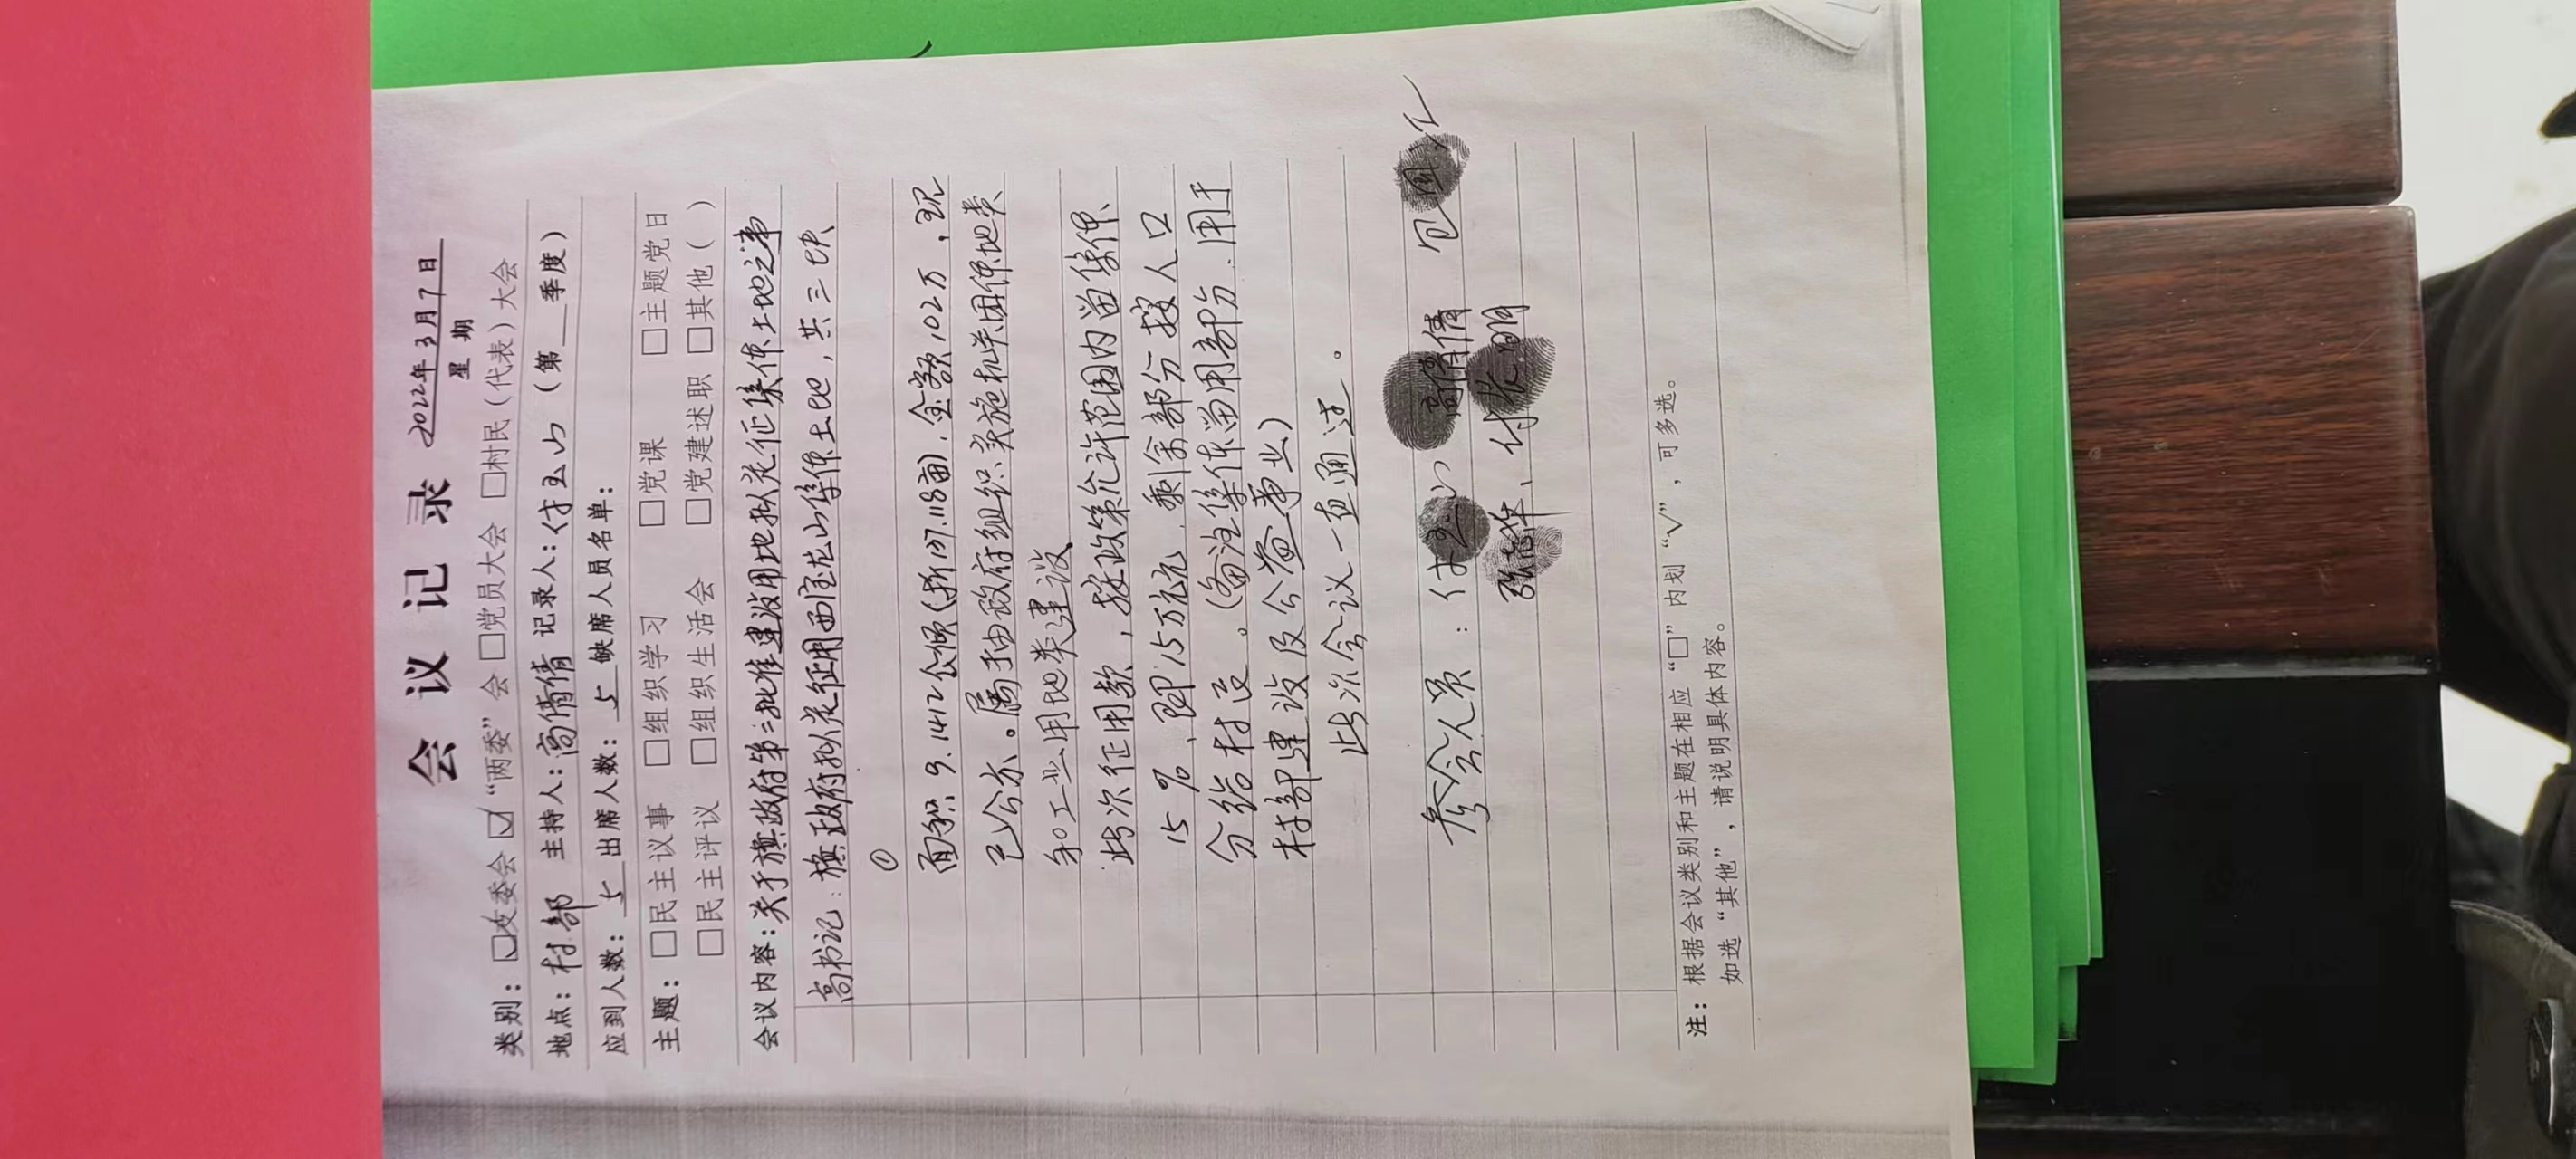 会 议 记 录 2022年3月7日
星 期
类别：□支委会 ☑“两委”会 □党员大会 □村民（代表）大会
地点：村部 主持人：高倩倩 记录人：付玉山 （第__季度）
应到人数：5 出席人数：5 缺席人员名单：
主题：□民主议事 □组织学习 □党课 □主题党日
□民主评议 □组织生活会 □党建述职 □其他（ ）
会议内容：关于旗政府第三批准建设用地拟征集体土地之事
高书记：旗政府拟征用西宝龙山集体土地，共三块
①
面积 9.1412公顷（折137.118亩），金额102万，现
已公示。属于由政府组织实施机关团体地类
和工业用地类建设
此次征用款，按政策允许范围内留集体
15％，即15万元，剩余部分按人口
分给村民。（备注集体留用部分，用于
村部建设及公益事业）
此次会议一直通过。
参会人员：付玉山 高倩倩 包
、付 明
注：根据会议类别和主题在相应“□”内划“√”，可多选。
如选“其他”，请说明具体内容。